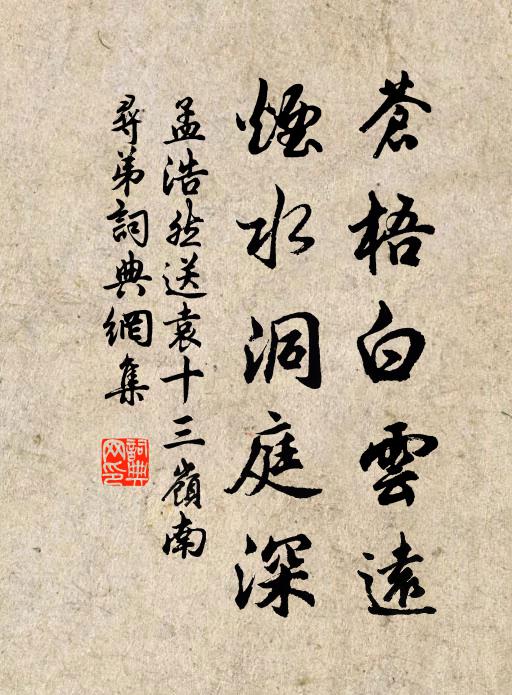 蒼梧白雲遠
煙水洞庭深
孟浩然送袁十三嶺南
尋弟詞典網集
詞典网印